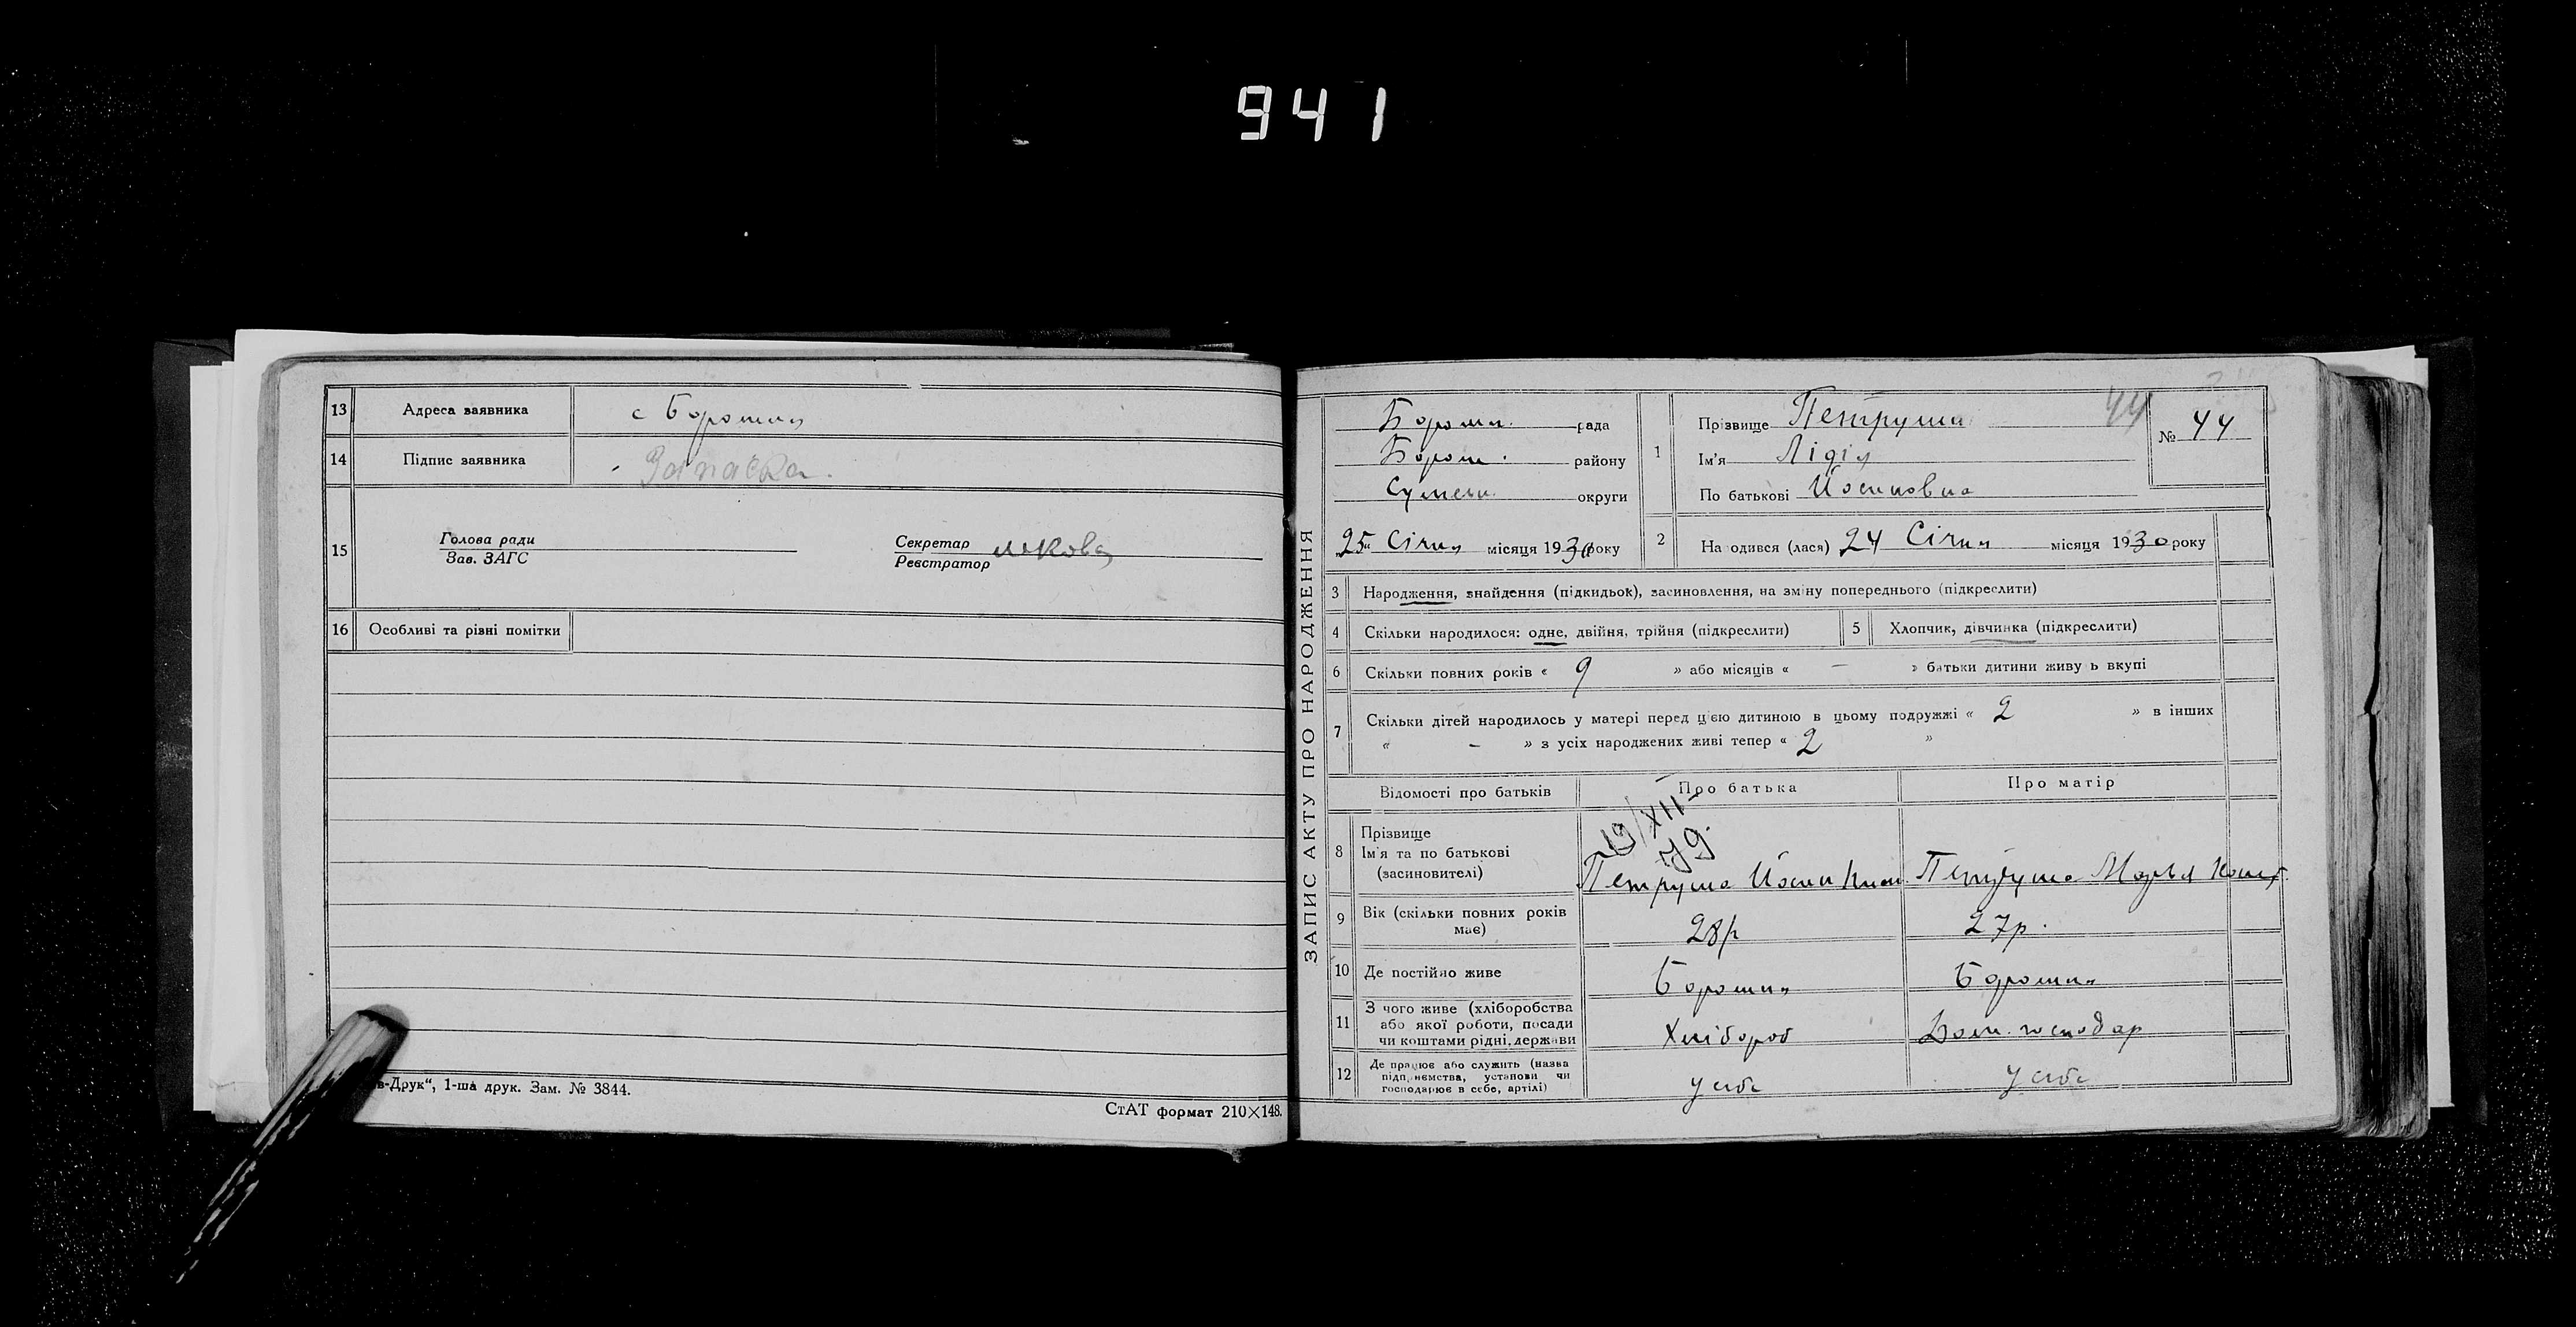 941
13 Адреса заявника с Боромля
14 Підпис заявника
15 Голова ради
Зав. ЗАГС
Секретар
Реєстратор
16 Особливі та різні помітки
в-Друк“, 1-ша друк. Зам. № 3844.
СтАТ формат 210×148.
ЗАПИС АКТУ ПРО НАРОДЖЕННЯ
Боромл. рада
Боромл. району
Сумськ. округи
„25“ Січня місяця 1930 року
44
№ 44
1 Прізвище Петруша
Ім'я Лідія
По батькові Йосиповна
2 На одився (лася) 24 Січня місяця 1930 року
3 Народження, знайдення (підкидьок), засиновлення, на зміну попереднього (підкреслити)
4 Скільки народилося: одне, двійня, трійня (підкреслити) 5 Хлопчик, дівчинка (підкреслити)
6 Скільки повних років « 9 » або місяців « — » батьки дитини живу ь вкупі
7 Скільки дітей народилось у матері перед цією дитиною в цьому подружжі « 2 » в інших
« – » з усіх народжених живі тепер « 2 »
Відомості про батьків Про батька Про матір
19/XII-
79.
8 Прізвище
Ім'я та по батькові
(засиновителі)
Петруша Йосип Петруша Марья
9 Вік (скільки повних років
має) 28р 27р.
10 Де постійно живе Боромля Боромля
11 З чого живе (хліборобства
або якої роботи, посади
чи коштами рідні, держави Хлібороб Дом. господар
12 Де працює або служить (назва
підприємства, установи чи
господарює в себе, артілі) у себе у себе